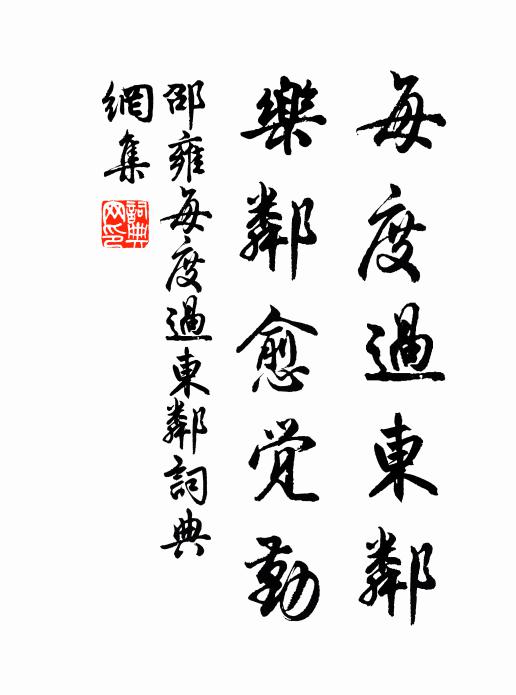 每度過東鄰
樂鄰愈覚勤
邵雍每度過東鄰詞典
網集
詞典
网印